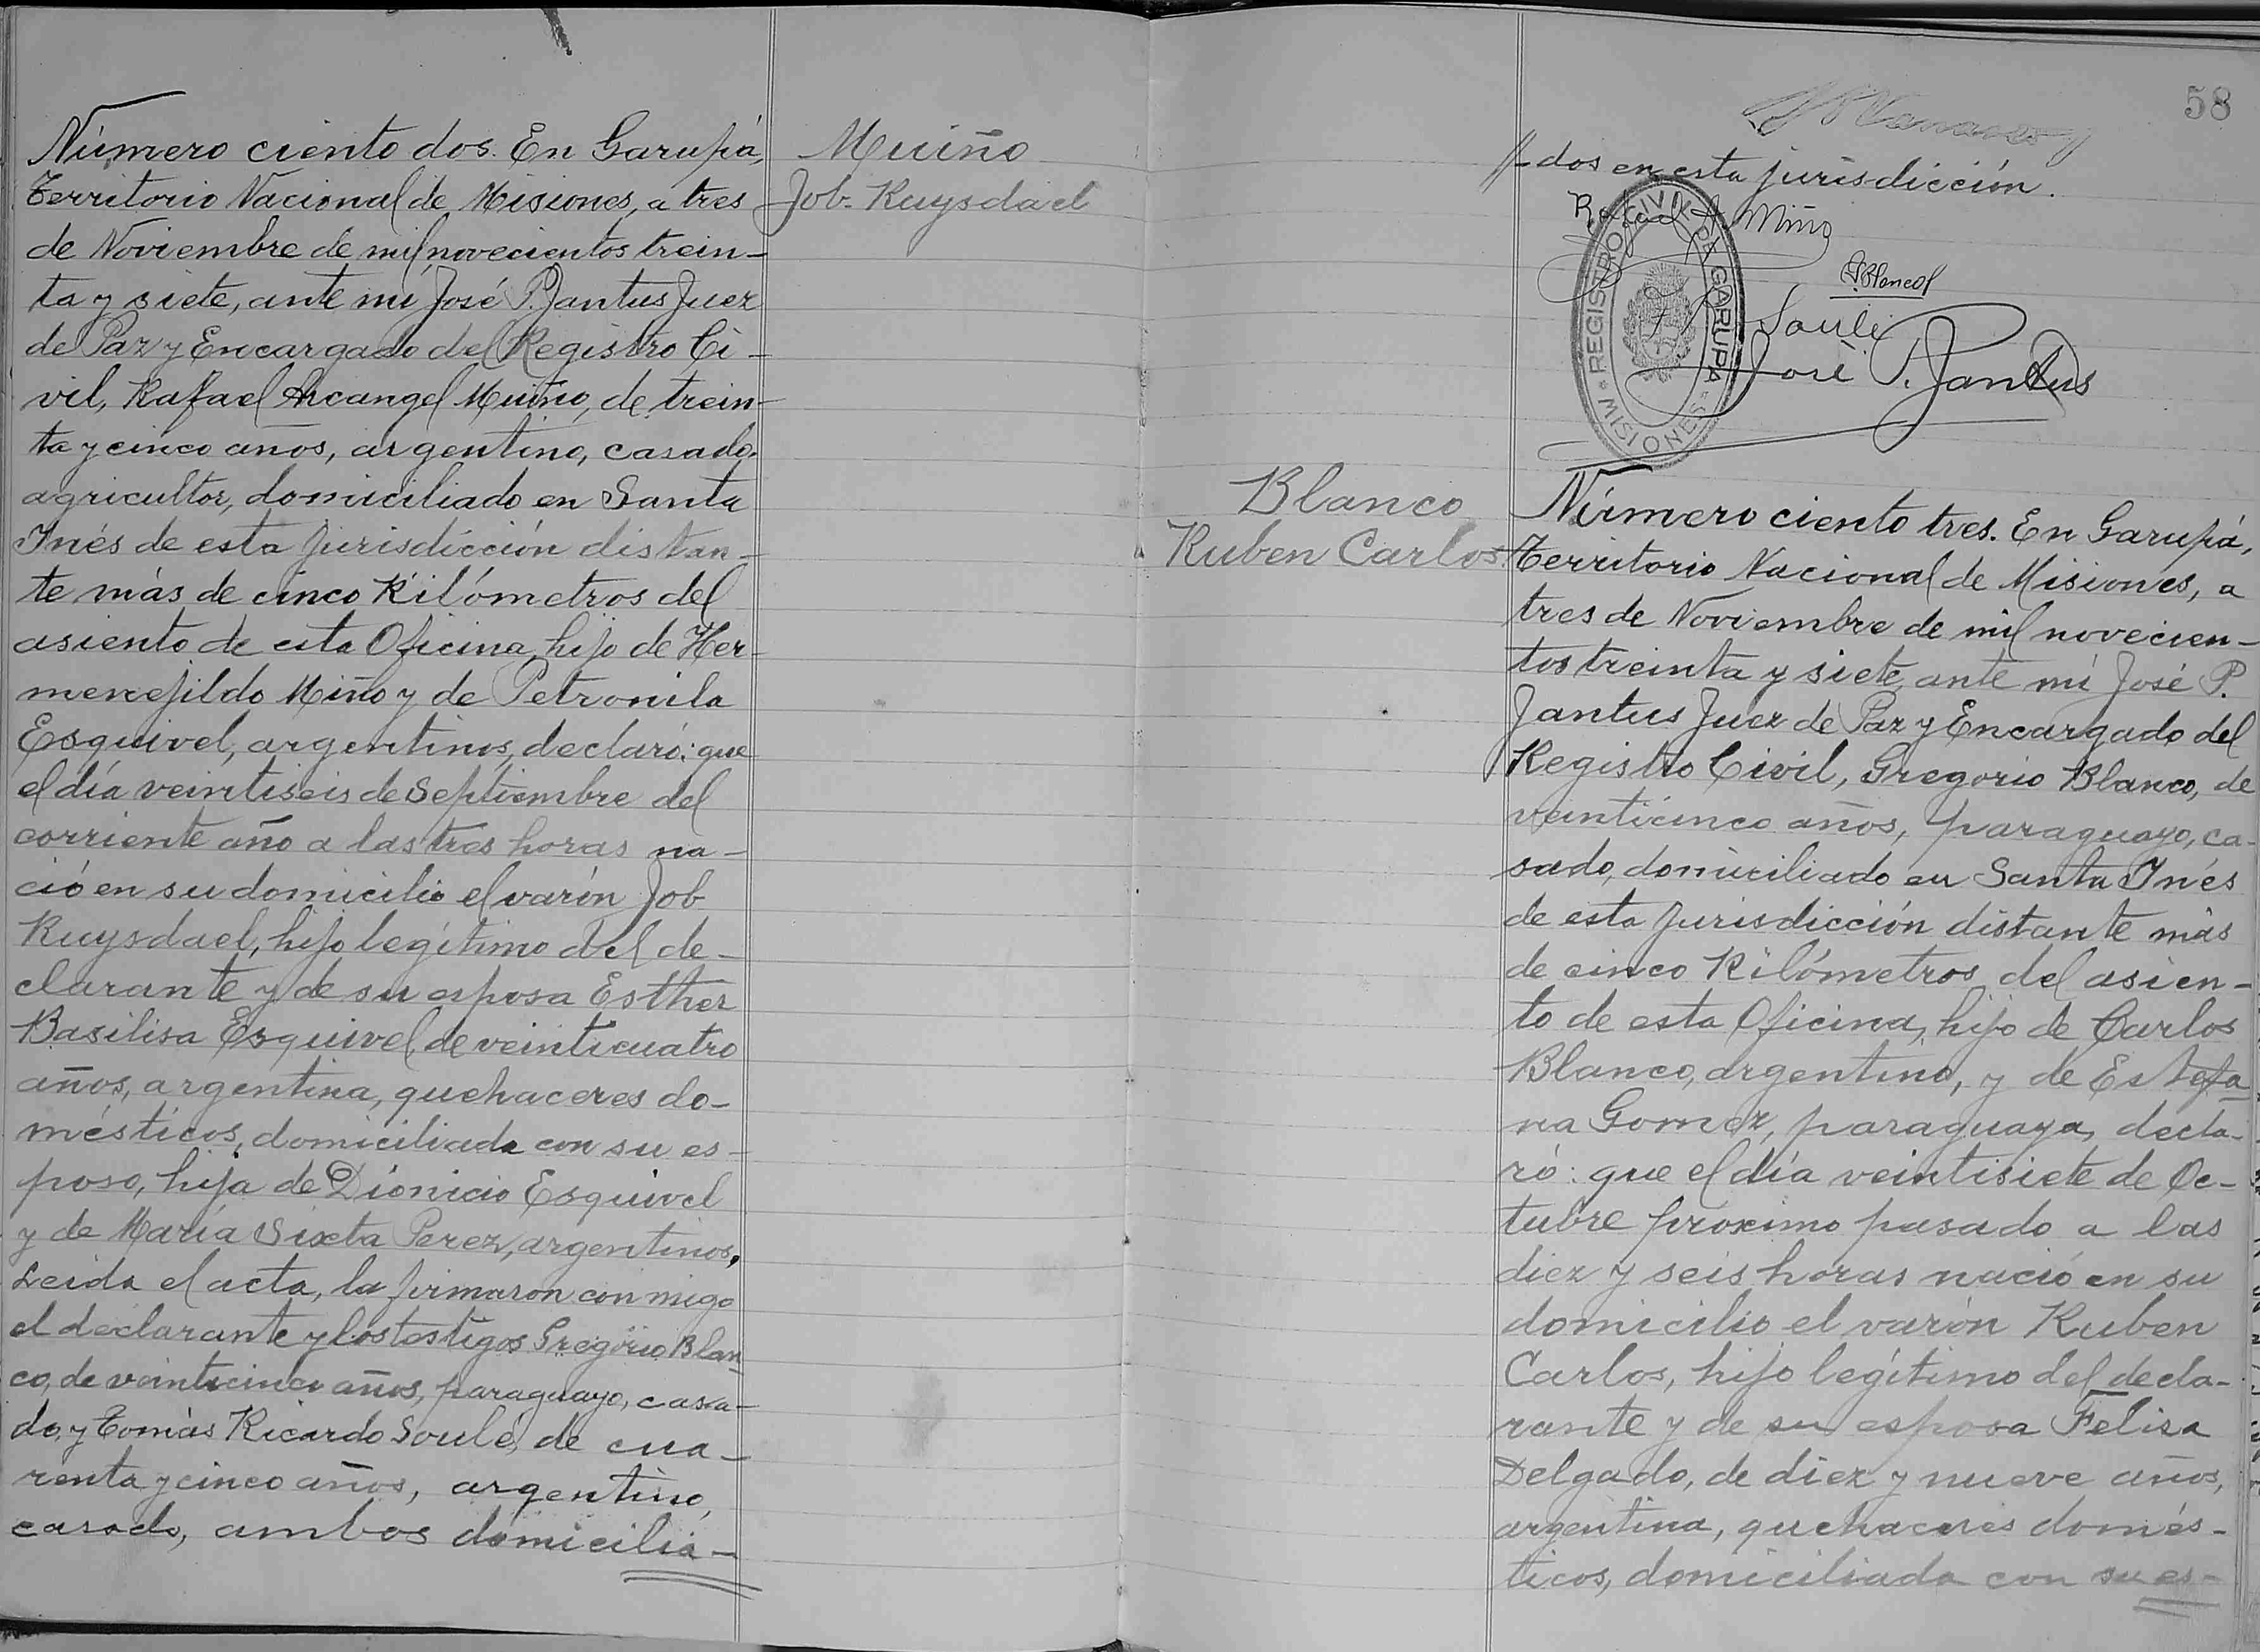 Número ciento dos. En Garupá,
Territorio Nacional de Misiones, a tres
de Noviembre de mil novecientos trein-
ta y siete, ante mi José P. Jantus Juez
de Paz y Encargado del Registro Ci-
vil, Rafael Arcangel Muiño, de trein-
ta y cinco años, argentino, casado,
agricultor, domiciliado en Santa
Inés de esta jurisdicción distan-
te más de cinco Kilómetros del
asiento de esta Oficina, hijo de Her-
menejildo Miño y de Petronila
Esquivel, argentinos, declaró: que
el día veintiseis de Septiembre del
corriente año a las tres horas na-
ció en su domicilio el varón Job
Ruysdael, hijo legítimo del de-
clarante y de su esposa Esther
Basilisa Esquivel, de veinticuatro
años, argentina, quehaceres do-
mésticos, domiciliada con su es-
poso, hija de Dionicio Esquivel
y de María Sixta Perez, argentinos.
Leida el acta, la firmaron con migo
el declarante y los testigos Gregorio Blan
co, de veinticinco años, paraguayo, casa-
do, y Tomás Ricardo Soulé, de cua-
renta y cinco años, argentino,
casado, ambos domicilia-
Muiño
Job. Ruysdael
58
//-dos en esta jurisdicción.
Rafael A Miño
GBlanco
Soulé
José P. Jantus
REGISTRO CIVIL DE GARUPA
MISIONES
Blanco
Ruben Carlos
Número ciento tres. En Garupá,
Territorio Nacional de Misiones, a
tres de Noviembre de mil novecien-
tos treinta y siete, ante mí José P.
Jantus Juez de Paz y Encargado del
Registro Civil, Gregorio Blanco, de
veinticinco años, paraguayo, ca-
sado, domiciliado en Santa Inés
de esta jurisdicción distante más
de cinco Kilómetros del asien-
to de esta Oficina, hijo de Carlos
Blanco, argentino, y de Estefa
na Gomez, paraguaya, decla-
ró: que el día veintisiete de Oc-
tubre proximo pasado a las
diez y seis horas nació en su
domicilio el varón Ruben
Carlos, hijo legítimo del decla-
rante y de su esposa Felisa
Delgado, de diez y nueve años,
argentina, quehaceres domés-
ticos, domiciliada con su es-